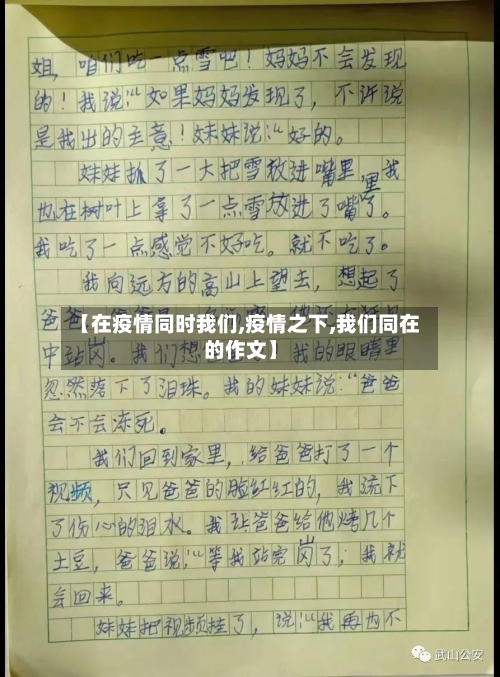 姐，咱们吃一点雪吧！妈妈不会发现
的！我说：“如果妈妈发现了，不许说
是我出的主意！妹妹说：“好的。
妹妹抓了一大把雪放进嘴里，我
也在树叶上拿了一点雪放进了嘴里了。
我吃了一点感觉不好吃。就不吃了。
我向远方的高山上望去，想起了
爸爸
【在疫情同时我们,疫情之下,我们同在
的作文】
中站岗。我们想爸爸 我的眼睛里
忽然落下了泪珠。我的妹妹说：“爸爸
会不会冻死。
我们回到家里，给爸爸打了一个
视频，只见爸爸的脸红红的，我流下
了伤心的泪水。我让爸爸给他烤几个
土豆，爸爸说：“等我站完岗了，我就
会回来。
妹妹把视频挂了，说：“我再也不
武山公安